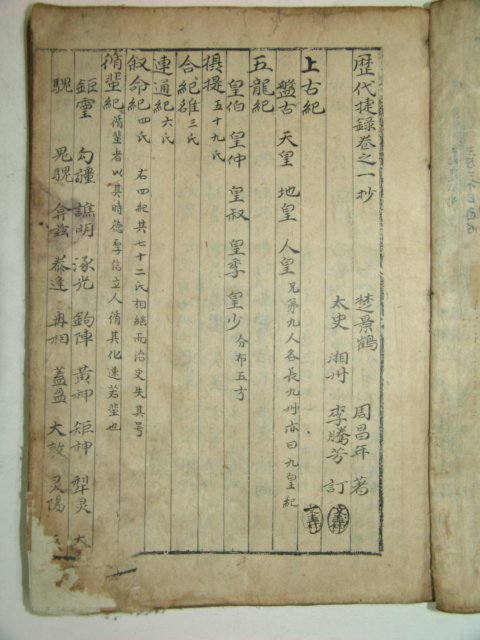 歷代捷錄卷之一抄
楚景鶴 周昌年 著
太史 湘州 李騰芳 訂
上古紀
盤古 天皇 地皇 人皇 兄弟九人各長九州亦曰九皇紀
五龍紀
皇伯 皇仲 皇叔 皇季 皇少 分布五方
攝提 五十九氏
合紀雒 三氏
連通紀 六氏
叙命紀 四氏 右四紀共七十二氏相継而治史失其号
循蜚紀 循蜚者以其時德季信立人循其化速若蜚也
鉅靈 勾彊 譙明 涿光 鉤陣 黃神 矩神 犁灵 大
騩 鬼騩 弇玆 泰逢 冉相 蓋盈 大敦 灵陽